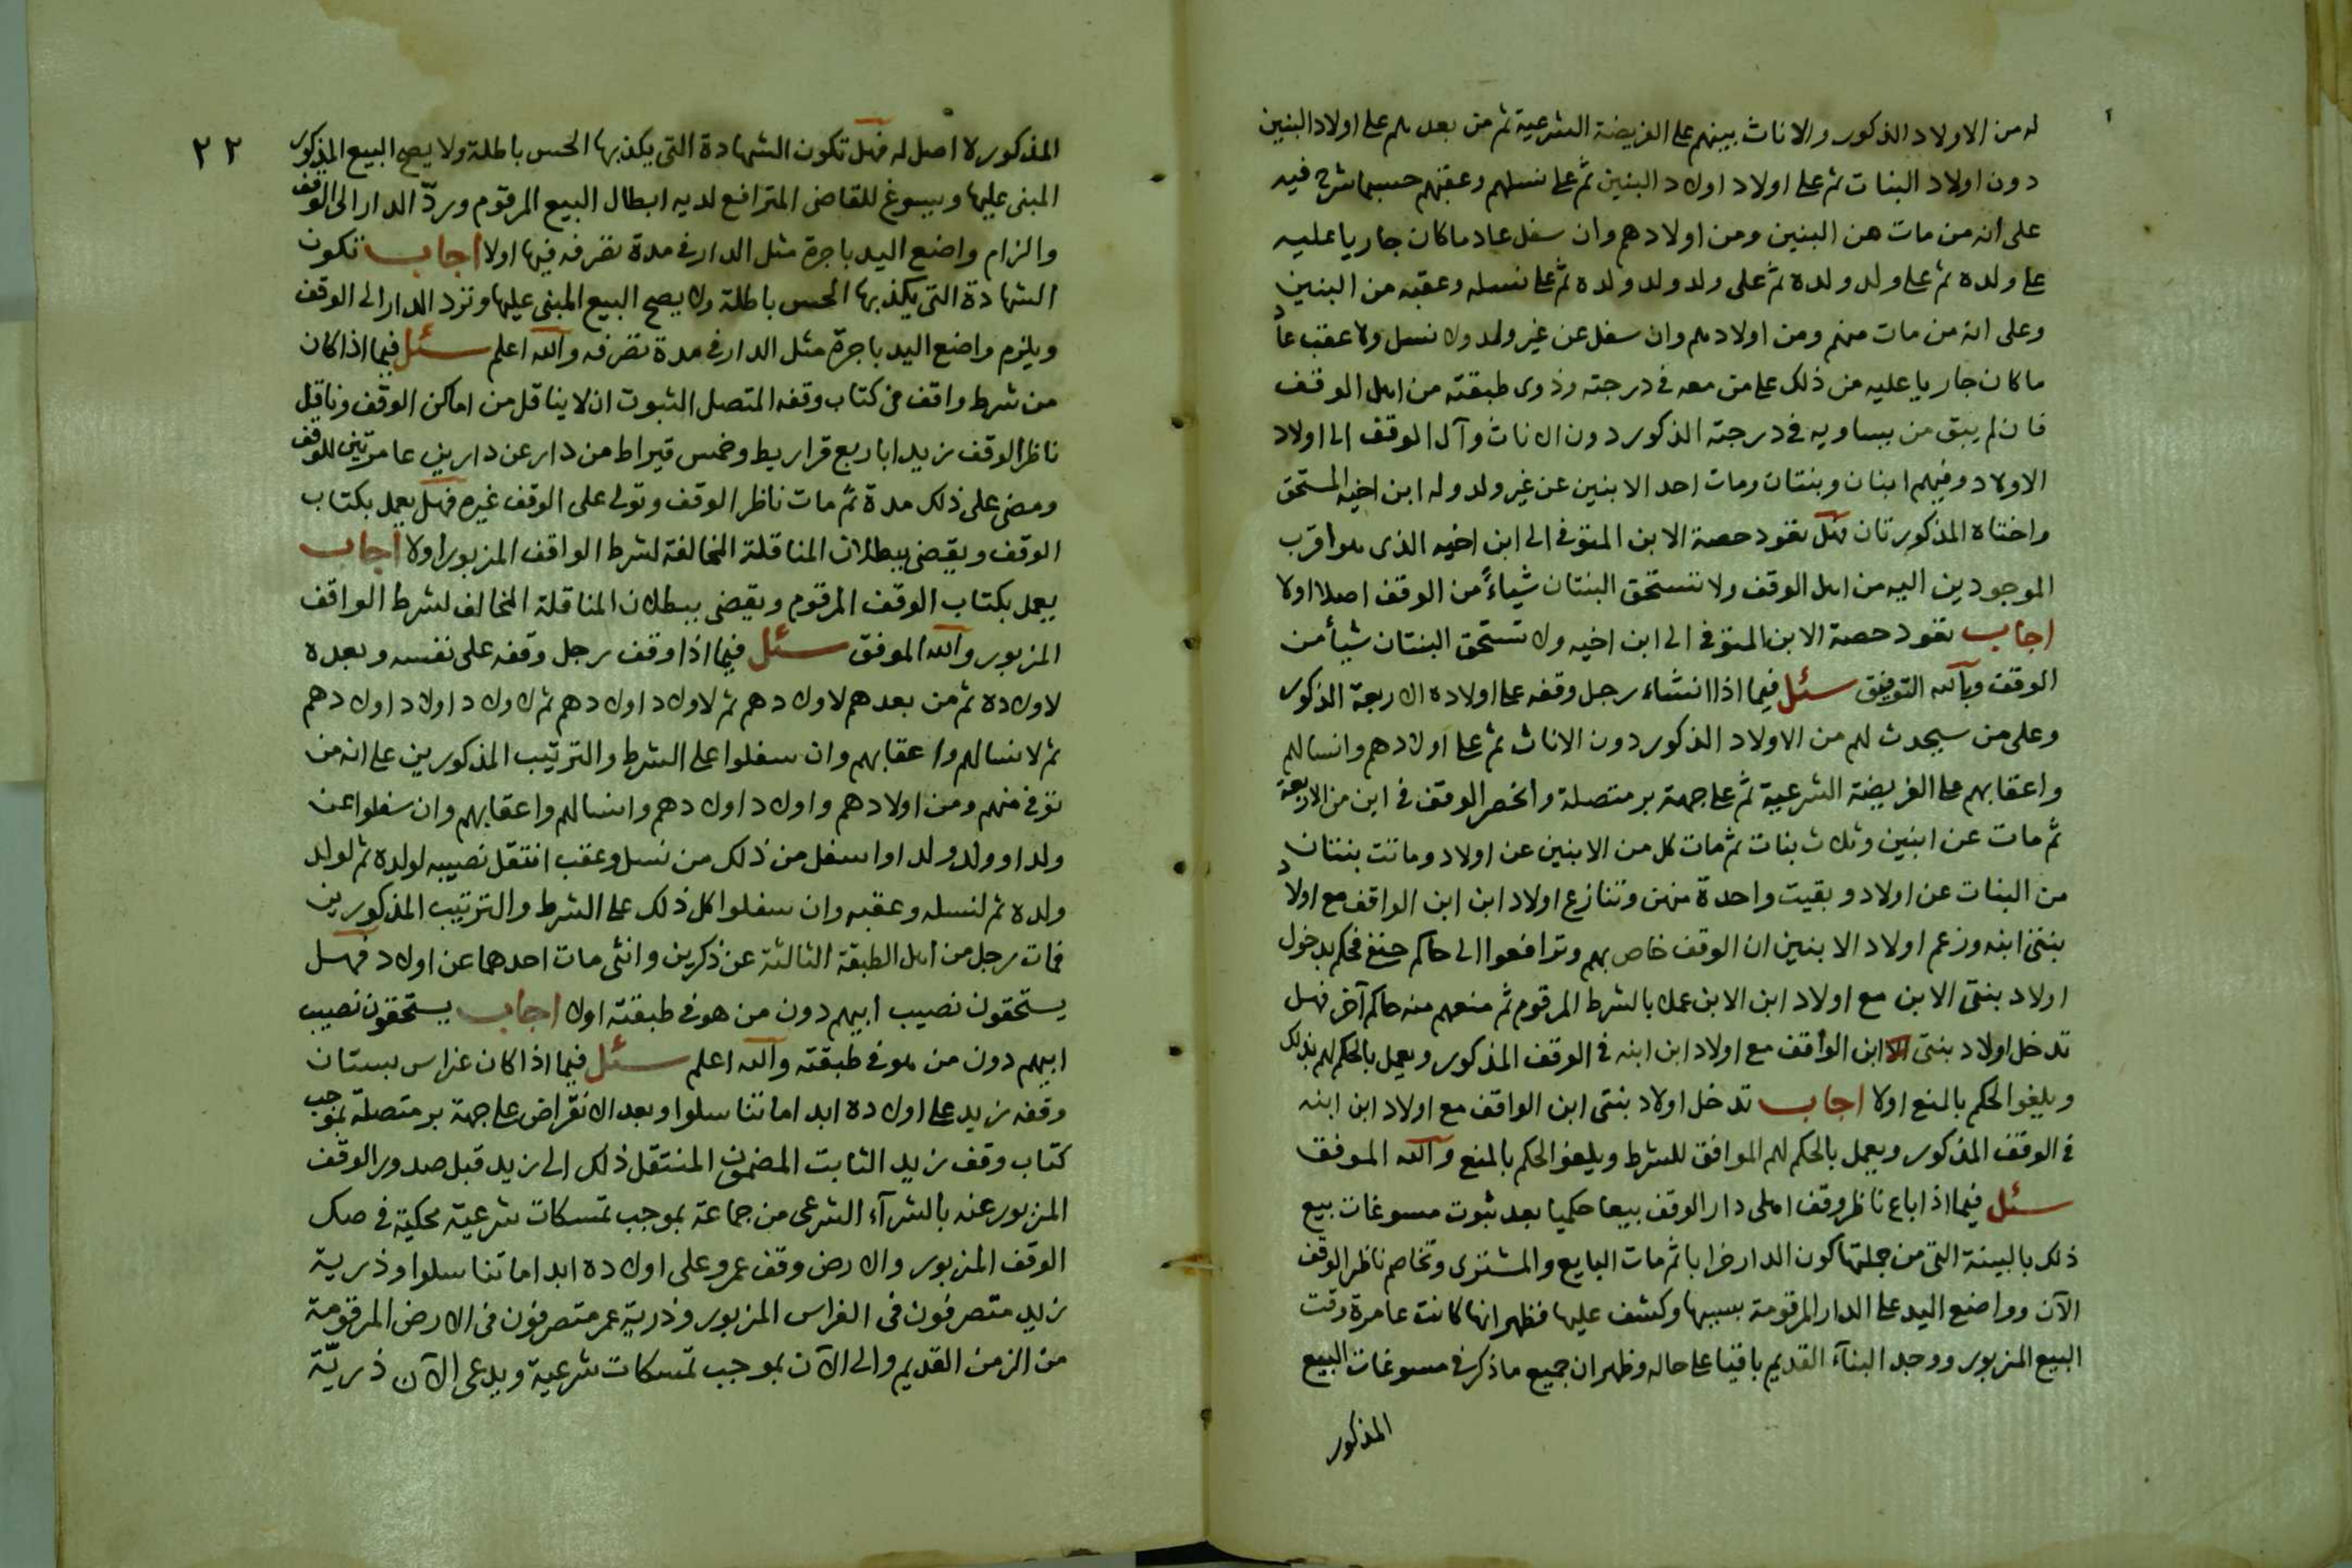 له من الاولاد الذكور والاناث بينهم على الفريضة الشرعية ثم من بعدهم على اولاد البنين
دون اولاد البنات ثم على اولاد اولاد البنين ثم على نسلهم وعقبهم حسبما شرح فيه
على انه من مات من البنين ومن اولادهم وان سفل عاد ماكان جاريا عليه
على ولده ثم على ولد ولده ثم على ولد ولد ولده ثم على نسله وعقبه من البنين
وعلى انه من مات منهم ومن اولادهم وان سفل عن غير ولد ولا نسل ولا عقب عاد
ماكان جاريا عليه من ذلك على من معه في درجته وذوى طبقته من اهل الوقف
فان لم يبق من يساويه في درجته الذكور دون الاناث وآل الوقف الى اولاد
الاولاد وفيهم ابنان وبنتان ومات احد الابنين عن غير ولد وله ابن اخيه المستحق
واختاه المذكورتان فهل تعود حصة الابن المتوفى الى ابن اخيه الذى هو اقرب
الموجودين اليه من اهل الوقف ولا تستحق البنتان شياءً من الوقف اصلا اولا
اجاب تعود حصة الابن المتوفى الى ابن اخيه ولا تستحق البنتان شيأ من
الوقف وبالله التوفيق سئل فيما اذا انشاء رجل وقفه على اولاده الاربعة الذكور
وعلى من سيحدث لهم من الاولاد الذكور دون الاناث ثم على اولادهم وانسالهم
واعقابهم على الفريضة الشرعية ثم على جهة بر متصلة وانحصر الوقف في ابن من الاربعة
ثم مات عن ابنين وثلاث بنات ثم مات كل من الابنين عن اولاد وماتت بنتان
من البنات عن اولاد وبقيت واحدة منهن وتنازع اولاد ابن ابن الواقف مع اولاد
بنتى ابنه وزعم اولاد الابنين ان الوقف خاص بهم وترافعوا الى حاكم حنفى فحكم بدخول
اولاد بنتى الابن مع اولاد ابن الابن عملا بالشرط المرقوم ثم منعهم منه حاكم آخر فهل
تدخل اولاد بنتى ابن الواقف مع اولاد ابن ابنه في الوقف المذكور ويعمل بالحكم لهم بذلك
ويلغو الحكم بالمنع اولا اجاب تدخل اولاد بنتى ابن الواقف مع اولاد ابن ابنه
في الوقف المذكور ويعمل بالحكم لهم الموافق للشرط ويلغو الحكم بالمنع والله الموفق
سئل فيما اذا باع ناظر وقف اهلى دار الوقف بيعا حكميا بعد ثبوت مسوغات بيع
ذلك بالبينة التى من جملتها كون الدار خرابا ثم مات البايع والمشترى وتخاصم ناظر الوقف
الآن وواضع اليد على الدار المرقومة بسببها وكشف عليها فظهر انها كانت عامرة وقت
البيع المزبور ووجد البنآء القديم باقيا على حاله وظهر ان جميع ماذكر في مسوغات البيع
المذكور
٢٢
المذكور لا اصل له فهل تكون الشهادة التى يكذبها الحس باطلة ولا يصح البيع المذكور
المبنى عليها ويسوغ للقاضى المترافع لديه ابطال البيع المرقوم وردّ الدار الى الوقف
والزام واضع اليد باجرة مثل الدار في مدة تصرفه فيها اولا اجاب تكون
الشهادة التى يكذبها الحس باطلة ولا يصح البيع المبنى عليها وترد الدار الى الوقف
ويلزم واضع اليد باجرة مثل الدار في مدة تصرفه والله اعلم سئل فيما اذا كان
من شرط واقف في كتاب وقفه المتصل الثبوت ان لا يناقل من اماكن الوقف وناقل
ناظر الوقف زيدا باربع قراريط وخمس قيراط من دار عن دارين عامرتين للوقف
ومضى على ذلك مدة ثم مات ناظر الوقف وتولى على الوقف غيره فهل يعمل بكتاب
الوقف ويقضى ببطلان المناقلة المخالفة لشرط الواقف المزبور اولا اجاب
يعمل بكتاب الوقف المرقوم ويقضى ببطلان المناقلة المخالف لشرط الواقف
المزبور والله الموفق سئل فيما اذا وقف رجل وقفه على نفسه وبعده
لاولاده ثم من بعدهم لاولادهم ثم لاولاد اولادهم ثم لاولاد اولاد اولادهم
ثم لانسالهم واعقابهم وان سفلوا على الشرط والترتيب المذكورين على انه من
توفى منهم ومن اولادهم واولاد اولادهم وانسالهم واعقابهم وان سفلوا عن
ولد او ولد ولد او اسفل من ذلك من نسل وعقب انتقل نصيبه لولده ثم لولد
ولده ثم لنسله وعقبه وان سفلوا كل ذلك على الشرط والترتيب المذكورين
فمات رجل من اهل الطبقة الثالثة عن ذكرين وانثى مات احدهما عن اولاد فهل
يستحقون نصيب ابيهم دون من هو في طبقته اولا اجاب يستحقون نصيب
ابيهم دون من هو في طبقته والله اعلم سئل فيما اذا كان غراس بستان
وقفه زيد على اولاده ابدا ماتناسلوا وبعد الانقراض على جهة بر متصلة بموجب
كتاب وقف زيد الثابت المضمون المنتقل ذلك الى زيد قبل صدور الوقف
المزبور عنه بالشرآء الشرعى من جماعة بموجب تمسكات شرعية محكية في صك
الوقف المزبور والارض وقف عمرو على اولاده ابدا ماتناسلوا وذرية
زيد متصرفون في الغراس المزبور وذرية عمر متصرفون في الارض المرقومة
من الزمن القديم والى الآن بموجب تمسكات شرعية ويدعى الآن ذريّة